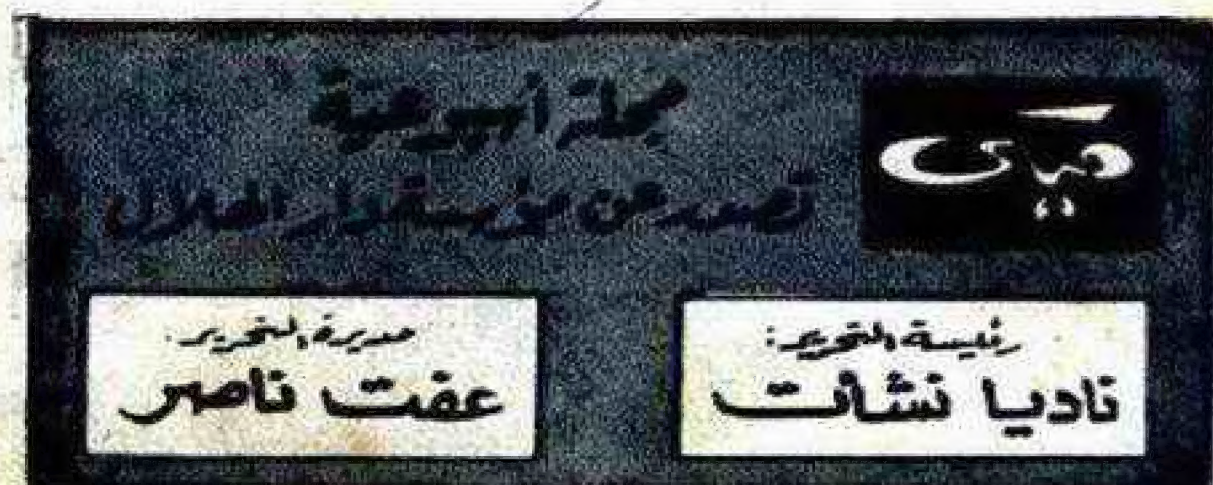 ميكى
مجلة أسبوعية
تصدر عن مؤسسة دار الهلال
رئيسة التحرير:
ناديا نشأت
مديرة التحرير:
عفت ناصر